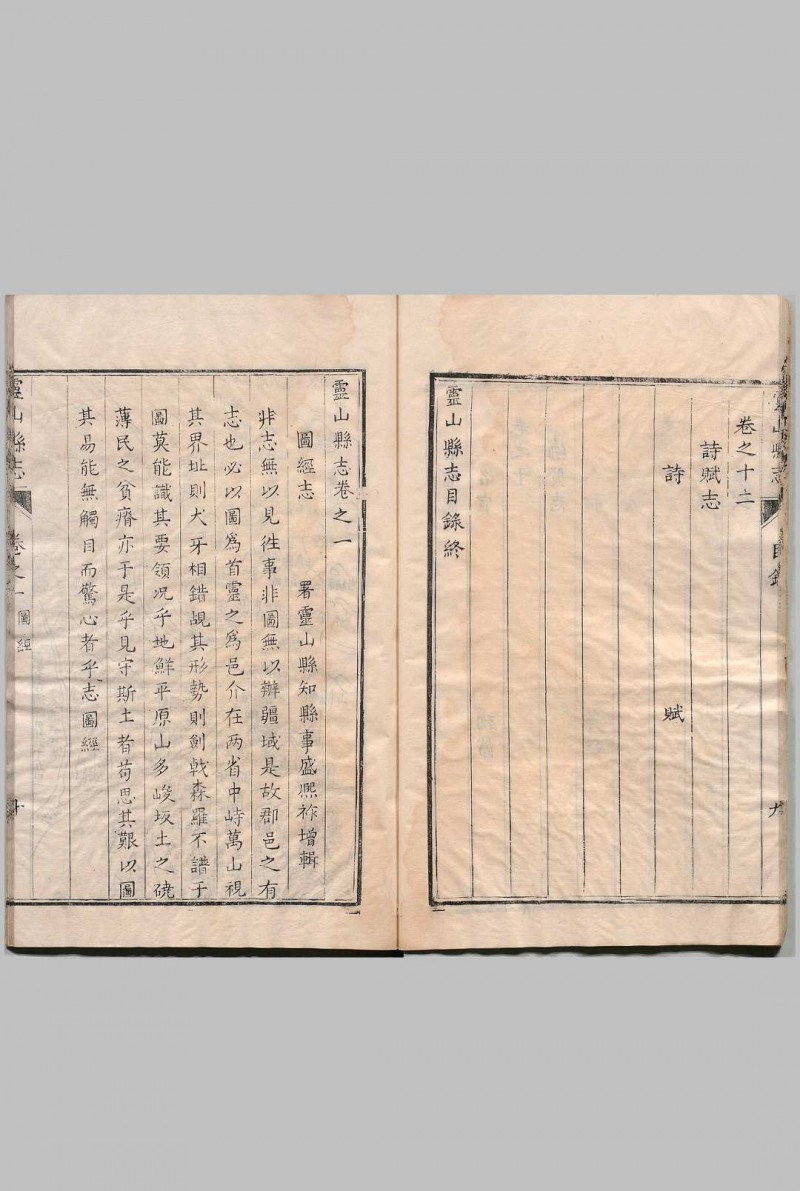 靈山縣志 目錄 九
卷之十二
詩賦志
詩 賦
靈山縣志目錄終
靈山縣志卷之一
圖經志 署靈山縣知縣事盛熙祚增輯
非志無以見徃事非圖無以辦疆域是故郡邑之有
志也必以圖爲首靈之爲邑介在两省中峙萬山視
其界址則犬牙相錯覘其形勢則劍戟森羅不譜于
圖莫能識其要領况乎地鮮平原山多峻坂土之磽
薄民之貧瘠亦于是乎見守斯土者苟思其艱以圖
其易能無觸目而驚心者乎志圖經
靈山縣志 卷之一 圖經 十